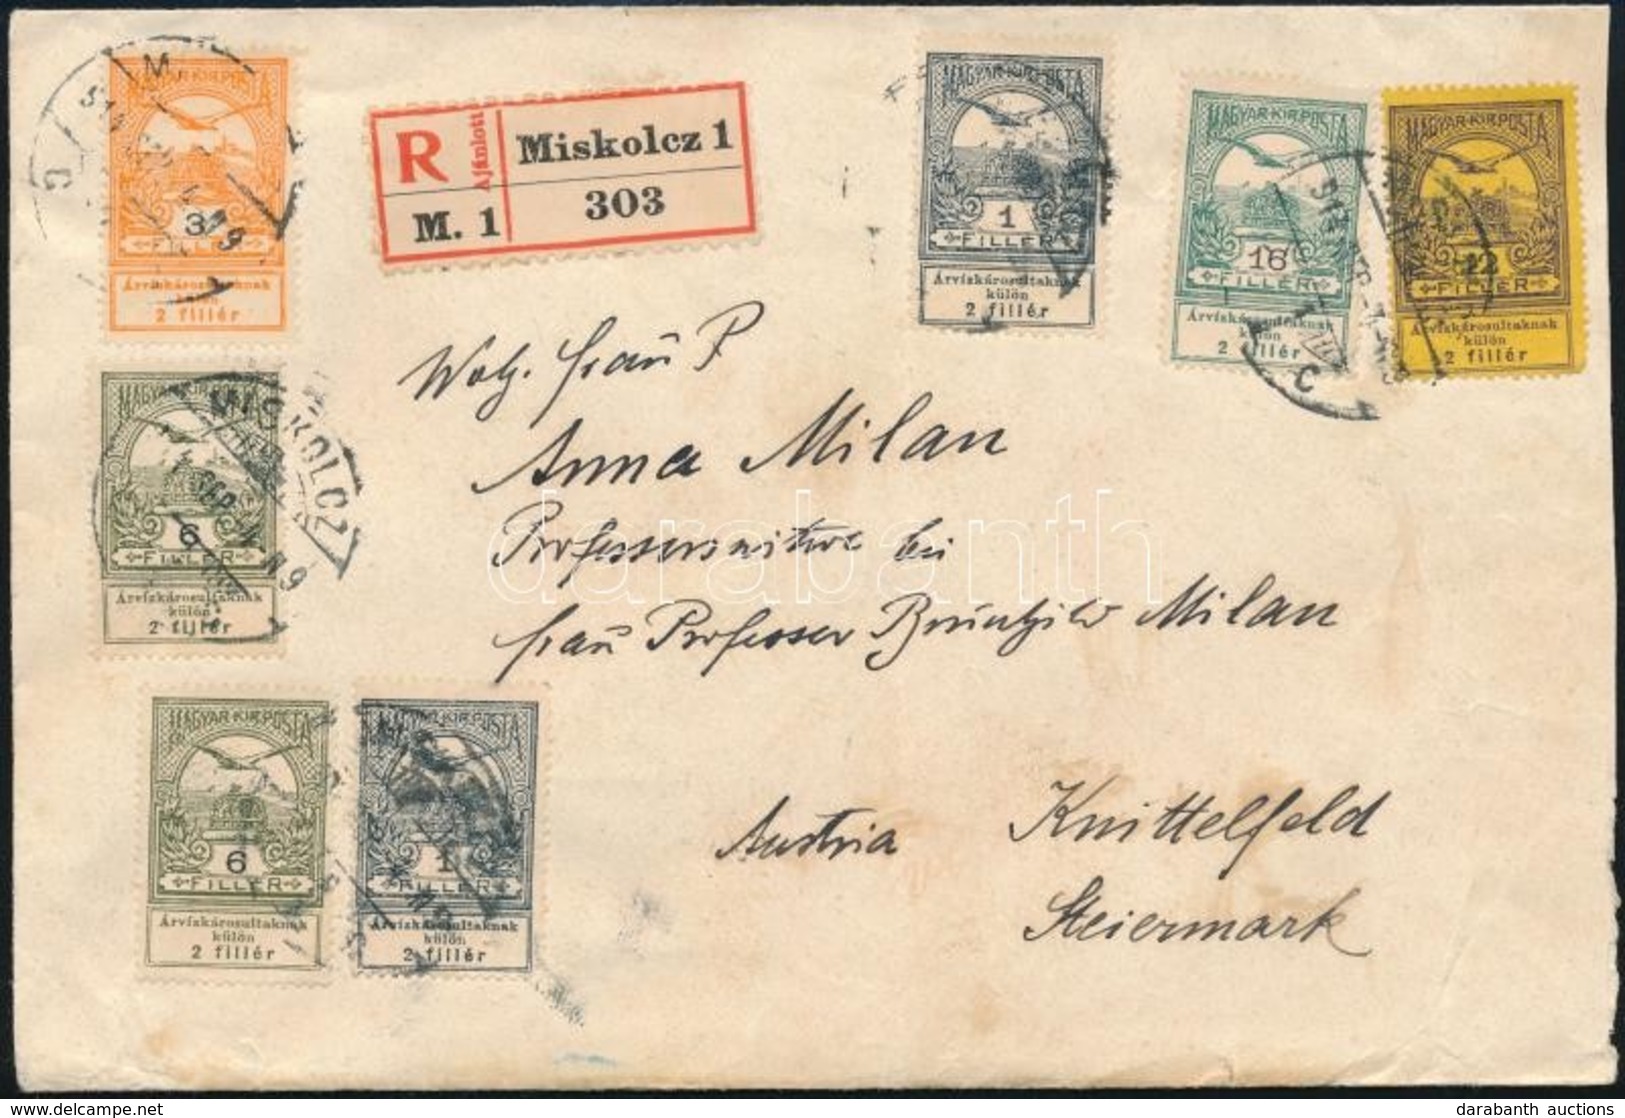 MAGYAR·KIR·POSTA
3
FILLÉR
Árvízkárosultaknak
külön
2 fillér
R
Ajánlott
Miskolcz 1
M. 1
303
MAGYAR·KIR·POSTA
1
FILLÉR
Árvízkárosultaknak
külön
2 fillér
MAGYAR·KIR·POSTA
16
FILLÉR
Árvízkárosultaknak
külön
2 fillér
MAGYAR·KIR·POSTA
12
FILLÉR
Árvízkárosultaknak
külön
2 fillér
MAGYAR·KIR·POSTA
6
FILLÉR
Árvízkárosultaknak
külön
2 fillér
MISKOLCZ
Frau P
Anna Milan
Professorswitwe bei
Frau Professor Brunhilde Milan
darabanth
MAGYAR·KIR·POSTA
6
FILLÉR
Árvízkárosultaknak
külön
2 fillér
MAGYAR·KIR·POSTA
1
FILLÉR
Árvízkárosultaknak
külön
2 fillér
Austria
Knittelfeld
Steiermark
delcampe.net
darabanth auctions